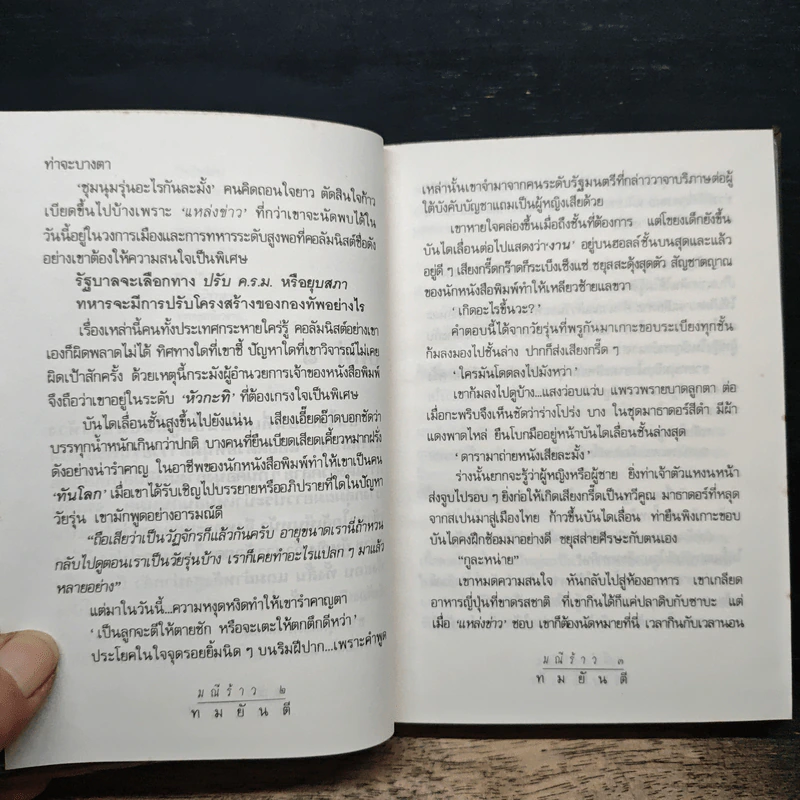 ท่าจะบางตา
'ชุมนุมรุ่นอะไรกันละมั้ง' คนคิดถอนใจยาว ตัดสินใจก้าว
เบียดขึ้นไปบ้างเพราะ 'แหล่งข่าว' ที่กว่าเขาจะนัดพบได้ใน
วันนี้อยู่ในวงการเมืองและการทหารระดับสูงพอที่คอลัมนิสต์ชื่อดัง
อย่างเขาต้องให้ความสนใจเป็นพิเศษ
รัฐบาลจะเลือกทาง ปรับ ค.ร.ม. หรือยุบสภา
ทหารจะมีการปรับโครงสร้างของกองทัพอย่างไร
เรื่องเหล่านี้คนทั้งประเทศกระหายใคร่รู้ คอลัมนิสต์อย่างเขา
เองก็ผิดพลาดไม่ได้ ทิศทางใดที่เขาชี้ ปัญหาใดที่เขาวิจารณ์ไม่เคย
ผิดเป้าสักครั้ง ด้วยเหตุนี้กระมังผู้อำนวยการเจ้าของหนังสือพิมพ์
จึงถือว่าเขาอยู่ในระดับ 'หัวกะทิ' ที่ต้องเกรงใจเป็นพิเศษ
บันไดเลื่อนชั้นสูงขึ้นไปยังแน่น เสียงเอี๊ยดอ๊าดบอกชัดว่า
บรรทุกน้ำหนักเกินกว่าปกติ บางคนที่ยืนเบียดเสียดเคี้ยวหมากฝรั่ง
ดังอย่างน่ารำคาญ ในอาชีพของนักหนังสือพิมพ์ทำให้เขาเป็นคน
'ทันโลก' เมื่อเขาได้รับเชิญไปบรรยายหรืออภิปรายที่ใดในปัญหา
วัยรุ่น เขามักพูดอย่างอารมณ์ดี
"ถือเสียว่าเป็นวัฏจักรก็แล้วกันครับ อายุขนาดเรานี่ถ้าหวน
กลับไปดูตอนเราเป็นวัยรุ่นบ้าง เราก็เคยทำอะไรแปลก ๆ มาแล้ว
หลายอย่าง"
แต่มาในวันนี้...ความหงุดหงิดทำให้เขารำคาญตา
'เป็นลูกจะตีให้ตายชัก หรือจะเตะให้ตกตึกดีหว่า'
ประโยคในใจจุดรอยยิ้มนิด ๆ บนริมฝีปาก...เพราะคำพูด
มณีร้าว ๒
ทมยันตี
เหล่านั้นเขาจำมาจากคนระดับรัฐมนตรีที่กล่าววาจาบริภาษต่อผู้
ใต้บังคับบัญชาแถมเป็นผู้หญิงเสียด้วย
เขาหายใจคล่องขึ้นเมื่อถึงชั้นที่ต้องการ แต่โขยงเด็กยังขึ้น
บันไดเลื่อนต่อไปแสดงว่า 'งาน' อยู่บนฮอลล์ชั้นบนสุดและแล้ว
อยู่ดี ๆ เสียงกรี๊ดกร๊าดก็ระเบ็งเซ็งแซ่ ชยุสสะดุ้งสุดตัว สัญชาตญาณ
ของนักหนังสือพิมพ์ทำให้เหลียวซ้ายแลขวา
'เกิดอะไรขึ้นวะ?'
คำตอบนี้ได้จากวัยรุ่นที่พรูกันมาเกาะขอบระเบียงทุกชั้น
ก้มลงมองไปชั้นล่าง ปากก็ส่งเสียงกรี๊ด ๆ
'ใครมันโดดลงไปมังหว่า?'
เขาก้มลงไปดูบ้าง...แสงวอบแว่บ แพรวพรายบาดลูกตา ต่อ
เมื่อกะพริบจึงเห็นชัดว่าร่างโปร่ง บาง ในชุดมาธาดอร์สีดำ มีผ้า
แดงพาดไหล่ ยืนโบกมืออยู่หน้าบันไดเลื่อนชั้นล่างสุด
'ดารามาถ่ายหนังเสียละมั้ง'
ร่างนั้นยากจะรู้ว่าผู้หญิงหรือผู้ชาย ยิ่งท่าเจ้าตัวแหงนหน้า
ส่งจูบไปรอบ ๆ ยิ่งก่อให้เกิดเสียงกรี๊ดเป็นทวีคูณ มาธาดอร์ที่หลุด
จากสเปนมาสู่เมืองไทย ก้าวขึ้นบันไดเลื่อน ท่ายืนพิงเกาะขอบ
บันไดคงฝึกซ้อมมาอย่างดี ชยุสส่ายศีรษะกับตนเอง
"กูละหน่าย"
เขาหมดความสนใจ หันกลับไปสู่ห้องอาหาร เขาเกลียด
อาหารญี่ปุ่นที่ขาดรสชาติ ที่เขากินได้ก็แค่ปลาดิบกับชาบะ แต่
เมื่อ 'แหล่งข่าว' ชอบ เขาก็ต้องนัดหมายที่นี่ เวลากินกับเวลานอน
มณีร้าว ๓
ทมยันตี